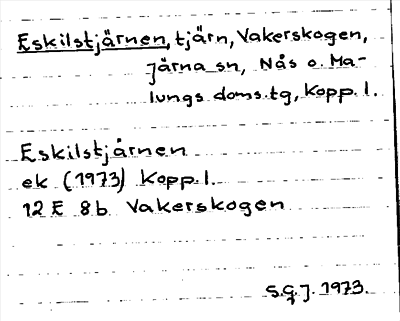 Eskilstjärnen, tjärn, Vakerskogen,
Järna sn, Nås o. Ma-
lungs doms.tg, Kopp. l.
Eskilstjärnen
ek (1973) Kopp. l.
12 E 8b Vakerskogen
S.G.J. 1973.